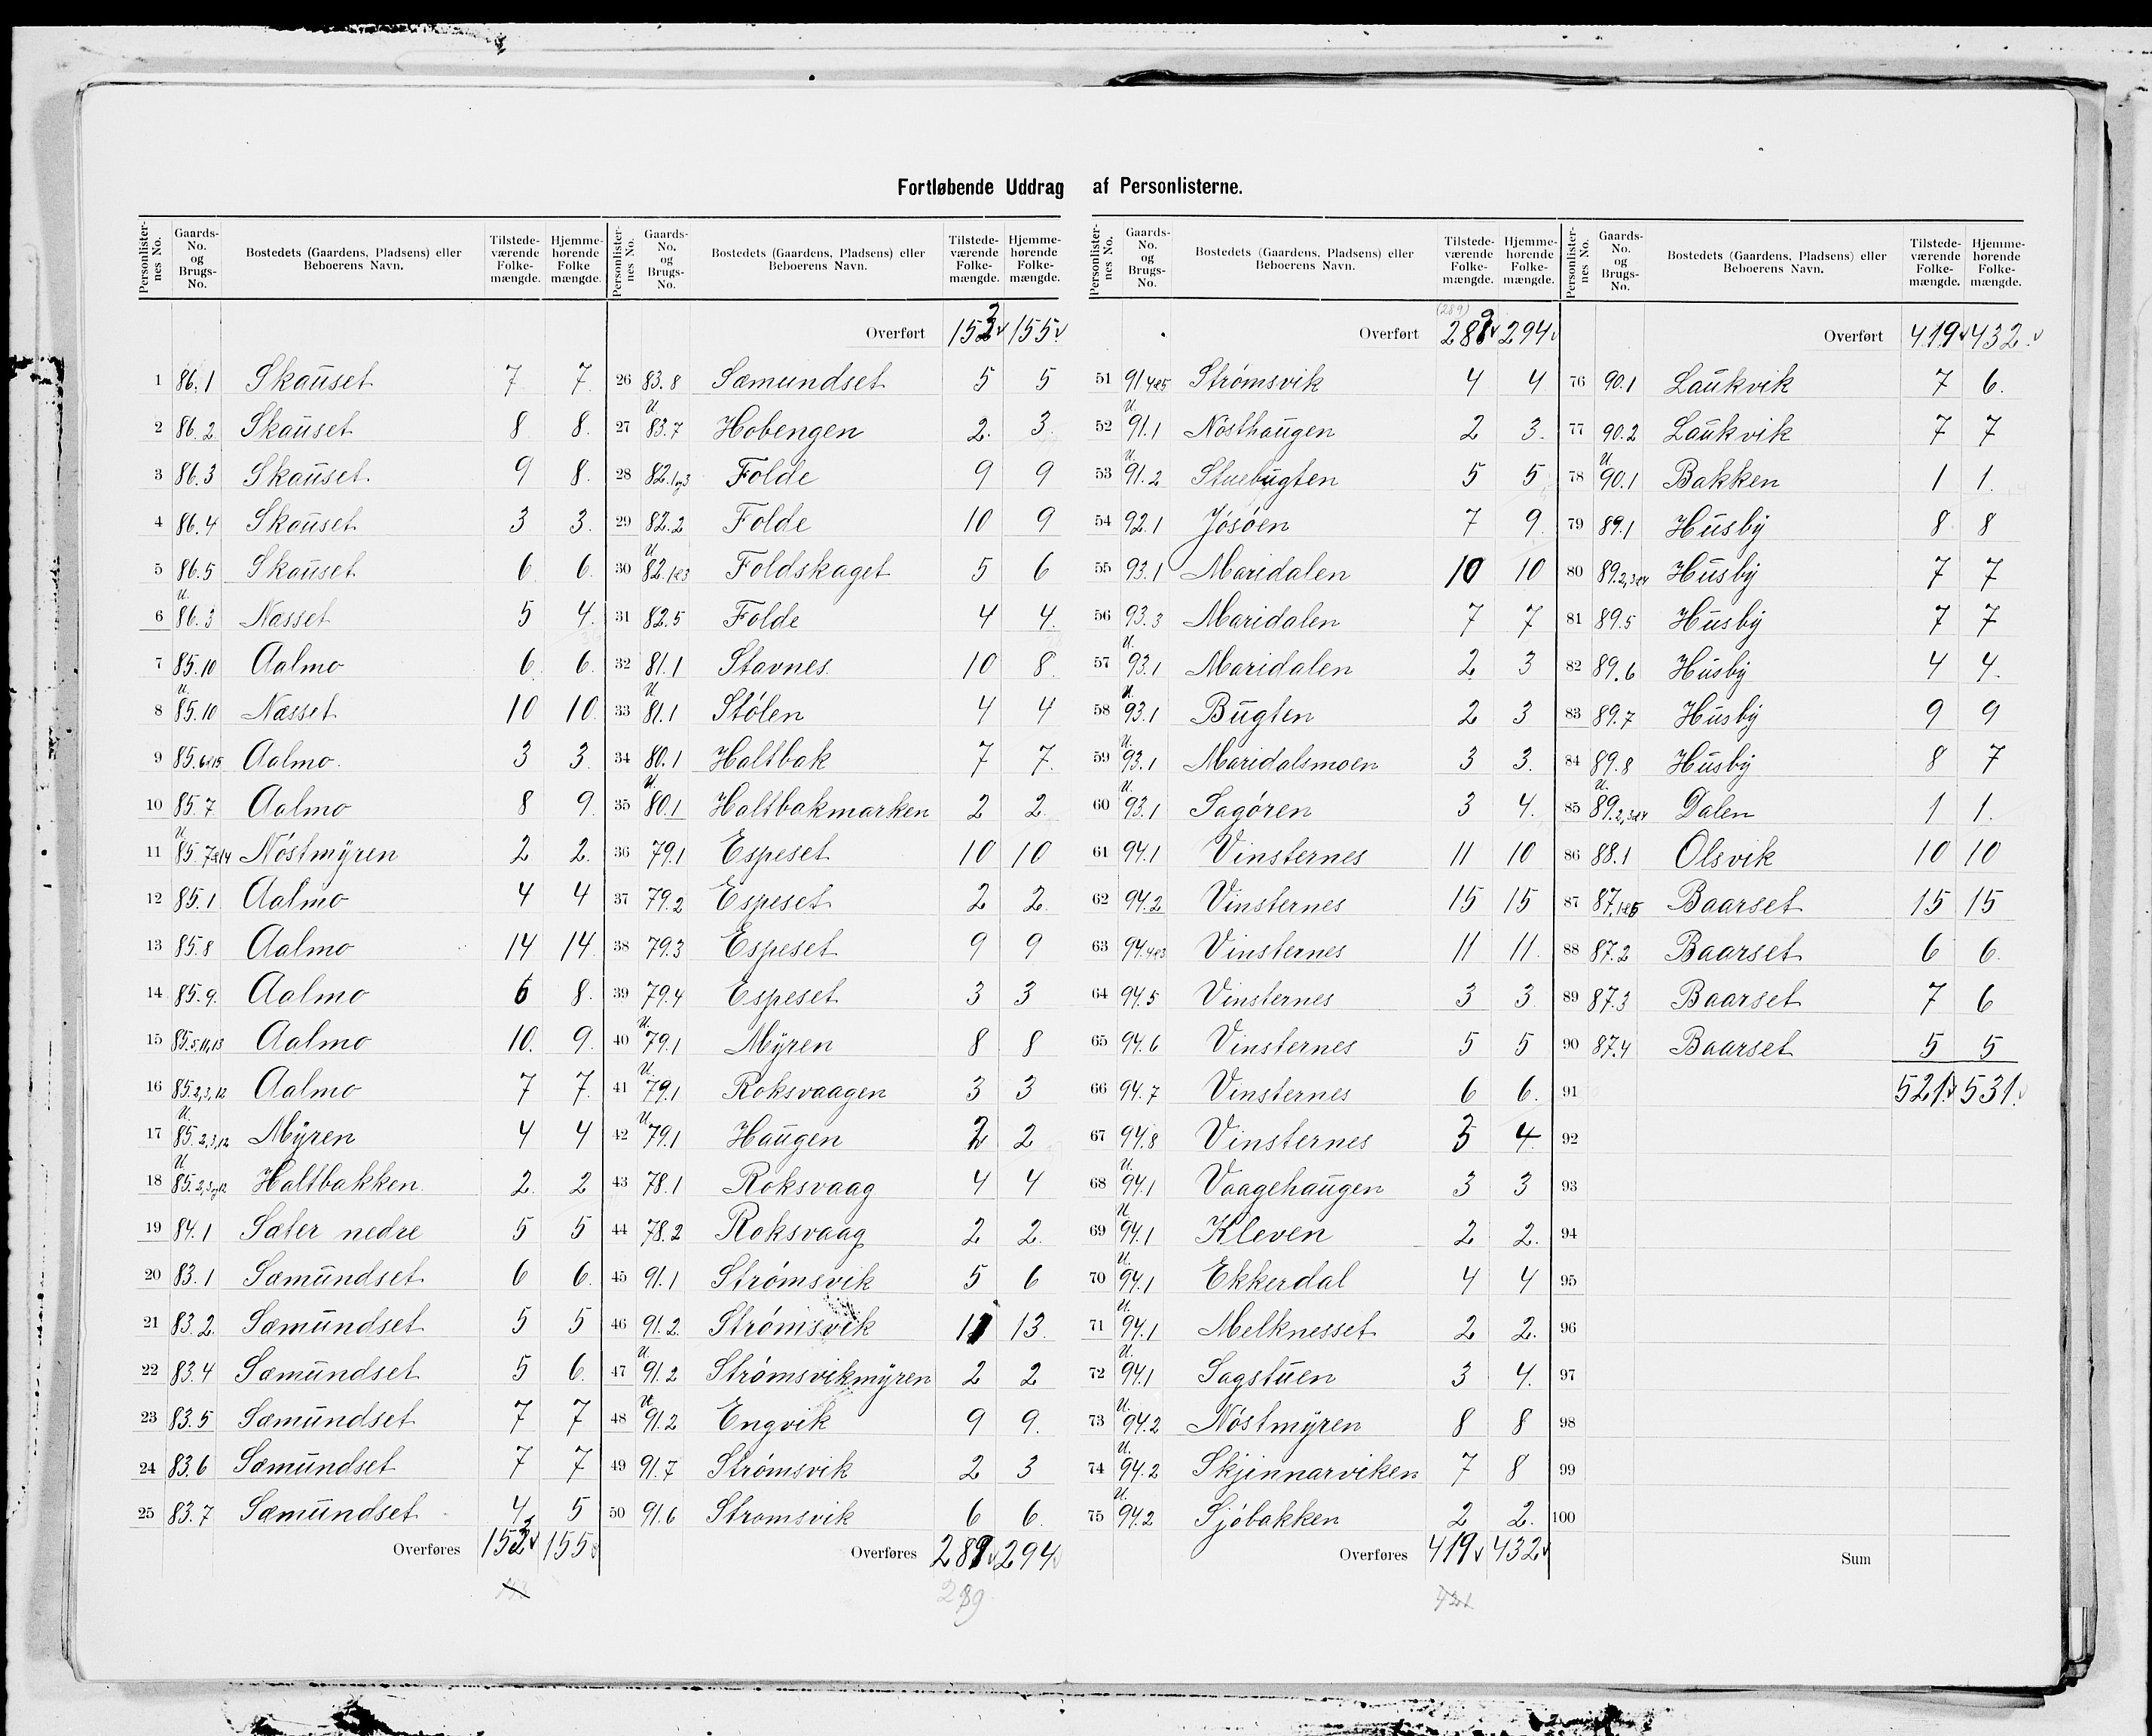 Fortløbende Uddrag af Personlisterne.
Personlisternes No. Gaards-No. og Brugs-No. Bostedets (Gaardens, Pladsens) eller Beboerens Navn. Tilstedeværende Folkemængde. Hjemmehørende Folkemængde.
1 86.1 Skauset 7 7
2 86.2 Skauset 8 8.
3 86.3 Skauset 9 8.
4 86.4 Skauset 3 3.
5 86.5 Skauset 6 6.
6 U. 86.3 Næsset 5 4.
7 85.10 Aalmo 6 6.
8 U. 85.10 Næsset 10 10.
9 85.6&15 Aalmo. 3 3.
10 85.7 Aalmo 8 9.
11 U. 85.7&14 Nöstmÿren 2 2.
12 85.1 Aalmo 4 4
13 85.8 Aalmo 14 14.
14 85.9. Aalmo 6 8.
15 85.5,11,13 Aalmo 10. 9.
16 85.2,3,12 Aalmo 7 7.
17 U. 85.2,3,12 Mÿren 4 4
18 U. 85.2,3og12 Haltbakken. 2. 2
19 84.1 Sæter nedre 5 5
20 83.1 Sæmundset 6 6.
21 83.2. Sæmundset 5 5
22 83.4 Sæmundset 5 6.
23 83.5 Sæmundset 7 7
24 83.6 Sæmundset 7 7
25 83.7 Sæmundset 4 5
Overføres 153 155
Personlisternes No. Gaards-No. og Brugs-No. Bostedets (Gaardens, Pladsens) eller Beboerens Navn. Tilstedeværende Folkemængde. Hjemmehørende Folkemængde.
Overført 153 155
26 83.8 Sæmundset 5 5
27 U. 83.7 Hobengen 2. 3.
28 82.1og3 Folde 9 9
29 82.2 Folde 10 9
30 U 82.1&3 Foldskaget 5 6
31 82.5 Folde 4 4.
32 81.1 Stavnes. 10 8.
33 U. 81.1 Stølen 4 4
34 80.1 Haltbak 7 7.
35 U. 80.1 Haltbakmarken 2 2.
36 79.1 Espeset 10 10
37 79.2 Espeset 2 2.
38 79.3 Espeset 9 9
39 79.4 Espeset 3 3
40 U. 79.1 Mÿren 8 8
41 U. 79.1 Roksvaagen 3 3
42 U. 79.1 Haugen 2 2
43 78.1 Roksvaag 4 4
44 78.2 Roksvaag 2 2.
45 91.1 Strömsvik 5 6
46 91.2. Strömsvik 11 13.
47 U. 91.2 Strömsvikmÿren 2 2
48 U 91.2 Engvik 9 9.
49 91.7 Strömsvik 2 3
50 91.6 Strömsvik 6 6.
Overføres 289 294
289
Personlisternes No. Gaards-No. og Brugs-No. Bostedets (Gaardens, Pladsens) eller Beboerens Navn. Tilstedeværende Folkemængde. Hjemmehørende Folkemængde.
(289)
Overført 289 294
51 91.4&5 Strömsvik 4 4
52 U. 91.1 Nösthaugen 2 3.
53 U. 91.2 Stuebugten 5 5
54 92.1 Jösöen 7 9.
55 93.1 Maridalen 10 10
56 93.3 Maridalen 7 7
57 U. 93.1 Maridalen 2 3
58 U. 93.1 Bugten 2 3
59 U. 93.1 Maridalsmoen 3 3.
60 U. 93.1 Sagören 3 4.
61 94.1 Vinsternes 11 10
62 94.2 Vinsternes 15 15
63 94.4&3 Vinsternes 11 11.
64 94.5 Vinsternes 3 3
65 94.6 Vinsternes 5 5
66 94.7 Vinsternes 6 6.
67 94.8 Vinsternes 3 4.
68 U. 94.1 Vaagehaugen 3 3
69 U. 94.1 Kleven 2 2.
70 U. 94.1 Ekkerdal 4 4
71 U. 94.1 Melknesset 2 2.
72 U. 94.1 Sagstuen 3 4.
73 U. 94.2 Nöstmÿren 8 8
74 U. 94.2 Skjinnarviken 7 8
75 U. 94.2 Sjöbakken 2 2.
Overføres 419 432
421
Personlisternes No. Gaards-No. og Brugs-No. Bostedets (Gaardens, Pladsens) eller Beboerens Navn. Tilstedeværende Folkemængde. Hjemmehørende Folkemængde.
Overført 419 432.
76 90.1 Laukvik 7 6.
77 90.2 Laukvik 7 7
78 U 90.1 Bakken 1 1.
79 89.1 Husby 8 8
80 89.2,3&4 Husby 7 7
81 89.5 Husby 7 7
82 89.6 Husby 4 4.
83 89.7 Husby 9 9
84 89.8 Husby 8 7
85 U. 89.2,3&4 Dalen 1 1.
86 88.1 Olsvik 10 10
87 87.1&5 Baarset 15 15
88 87.2 Baarset 6 6.
89 87.3 Baarset 7 6
90 87.4 Baarset 5 5
91 521. 531.
92
93
94
95
96
97
98
99
100
Sum